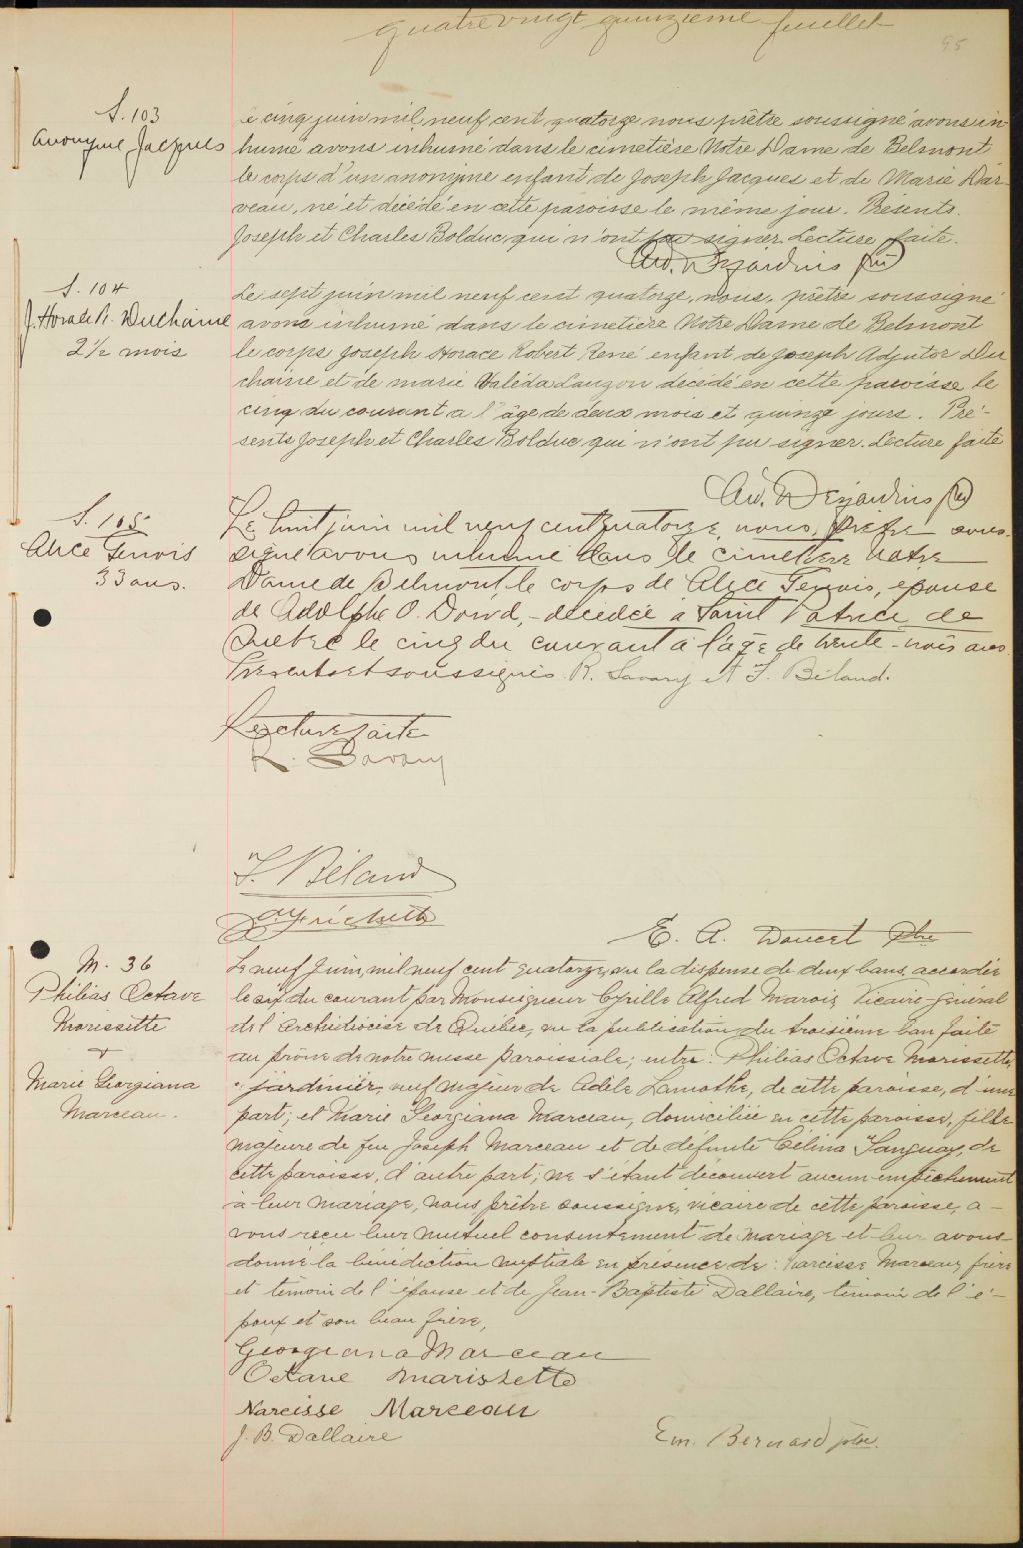 quatre vingt quinzieme feuillet
95
S. 103
Anonyme Jacques
Le cinq juin mil neuf cent quatorze nous prêtre soussigné avons in
humé avons inhumé dans le cimetière Notre Dame de Belmont
le corps d'un anonyme enfant de Joseph Jacques et de Marie Dar-
veau, né et décédé en cette paroisse le même jour. Présents.
Joseph et Charles Bolduc qui n'ont pu signer. Lecture faite.
Ad. Desjardins ptre
S. 104
J. Horace R. Duchaine
2 1/2 mois
Le sept juin mil neuf cent quatorze, nous, prêtre soussigné
avons inhumé dans le cimetière Notre Dame de Belmont
le corps Joseph Horace Robert René enfant de Joseph Adjutor Du
chaine et de Marie Valéda Lauzon décédé en cette paroisse le
cinq du courant a l'âge de deux mois et quinze jours. Pré-
sents Joseph et Charles Bolduc qui n'ont pu signer. Lecture faite
Ad. Desjardins ptre
S. 105
Alice Fervois
33 ans.
Le huit juin mil neuf cent quatorze, nous, prêtre sous-
signé avons inhumé dans le cimetière Notre
Dame de Belmont, le corps de Alice Fervois, epouse
de Adolphe O. Dowd, - décédée à Saint Patrice de
Québec le cinq du courant à l'âge de trente-trois ans.
Présents et soussignés R. Savary et F. Béland.
Lecture faite
R. Savary
F. Béland
E. A. Doucet Ptre
M. 36
Philias Octave
Morissette
+
Marie Georgiana
Marceau.
Le neuf Juin, mil neuf cent quatorze, vu la dispense de deux bans, accordée
le six du courant par Monseigneur Cyrille Alfred Marois, Vicaire-général
de l'Archidiocèse de Québec, vu la publication du troisième ban faite
au prône de notre messe paroissiale; entre: Philias Octave Morissette,
jardinier, veuf majeur de Adèle Lamothe, de cette paroisse, d'une
part; et Marie Georgiana Marceau, domiciliée en cette paroisse, fille
majeure de feu Joseph Marceau et de défunte Célina Tanguay, de
cette paroisse, d'autre part; ne s'étant découvert aucun empêchement
à leur mariage, nous prêtre soussigné, vicaire de cette paroisse, a-
vons reçu leur mutuel consentement de mariage et leur avons
donné la bénédiction nuptiale en présence de: Narcisse Marceau, frère
et témoin de l'épouse et de Jean-Baptiste Dallaire, témoin de l'é-
poux et son beau frère,
Georgiana Marceau
Octave Morissette
Narcisse Marceau
J. B. Dallaire
Em. Bernard ptre.